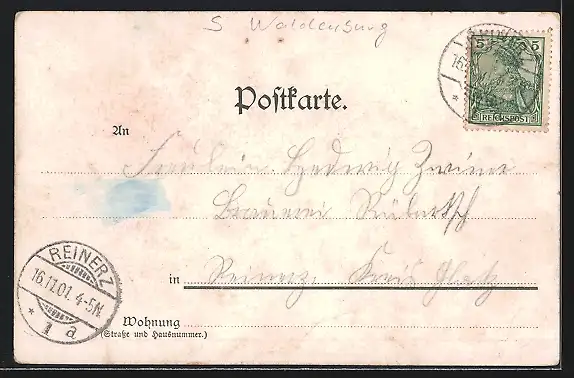 S Waldenburg
5 5
REICHSPOST
16
Postkarte.
An
Fräulein Hedwig
Brauerei
in Reinerz. Kreis Glatz
REINERZ
16.11.01. 4-5N.
* 1 a
Wohnung
(Straße und Hausnummer.)